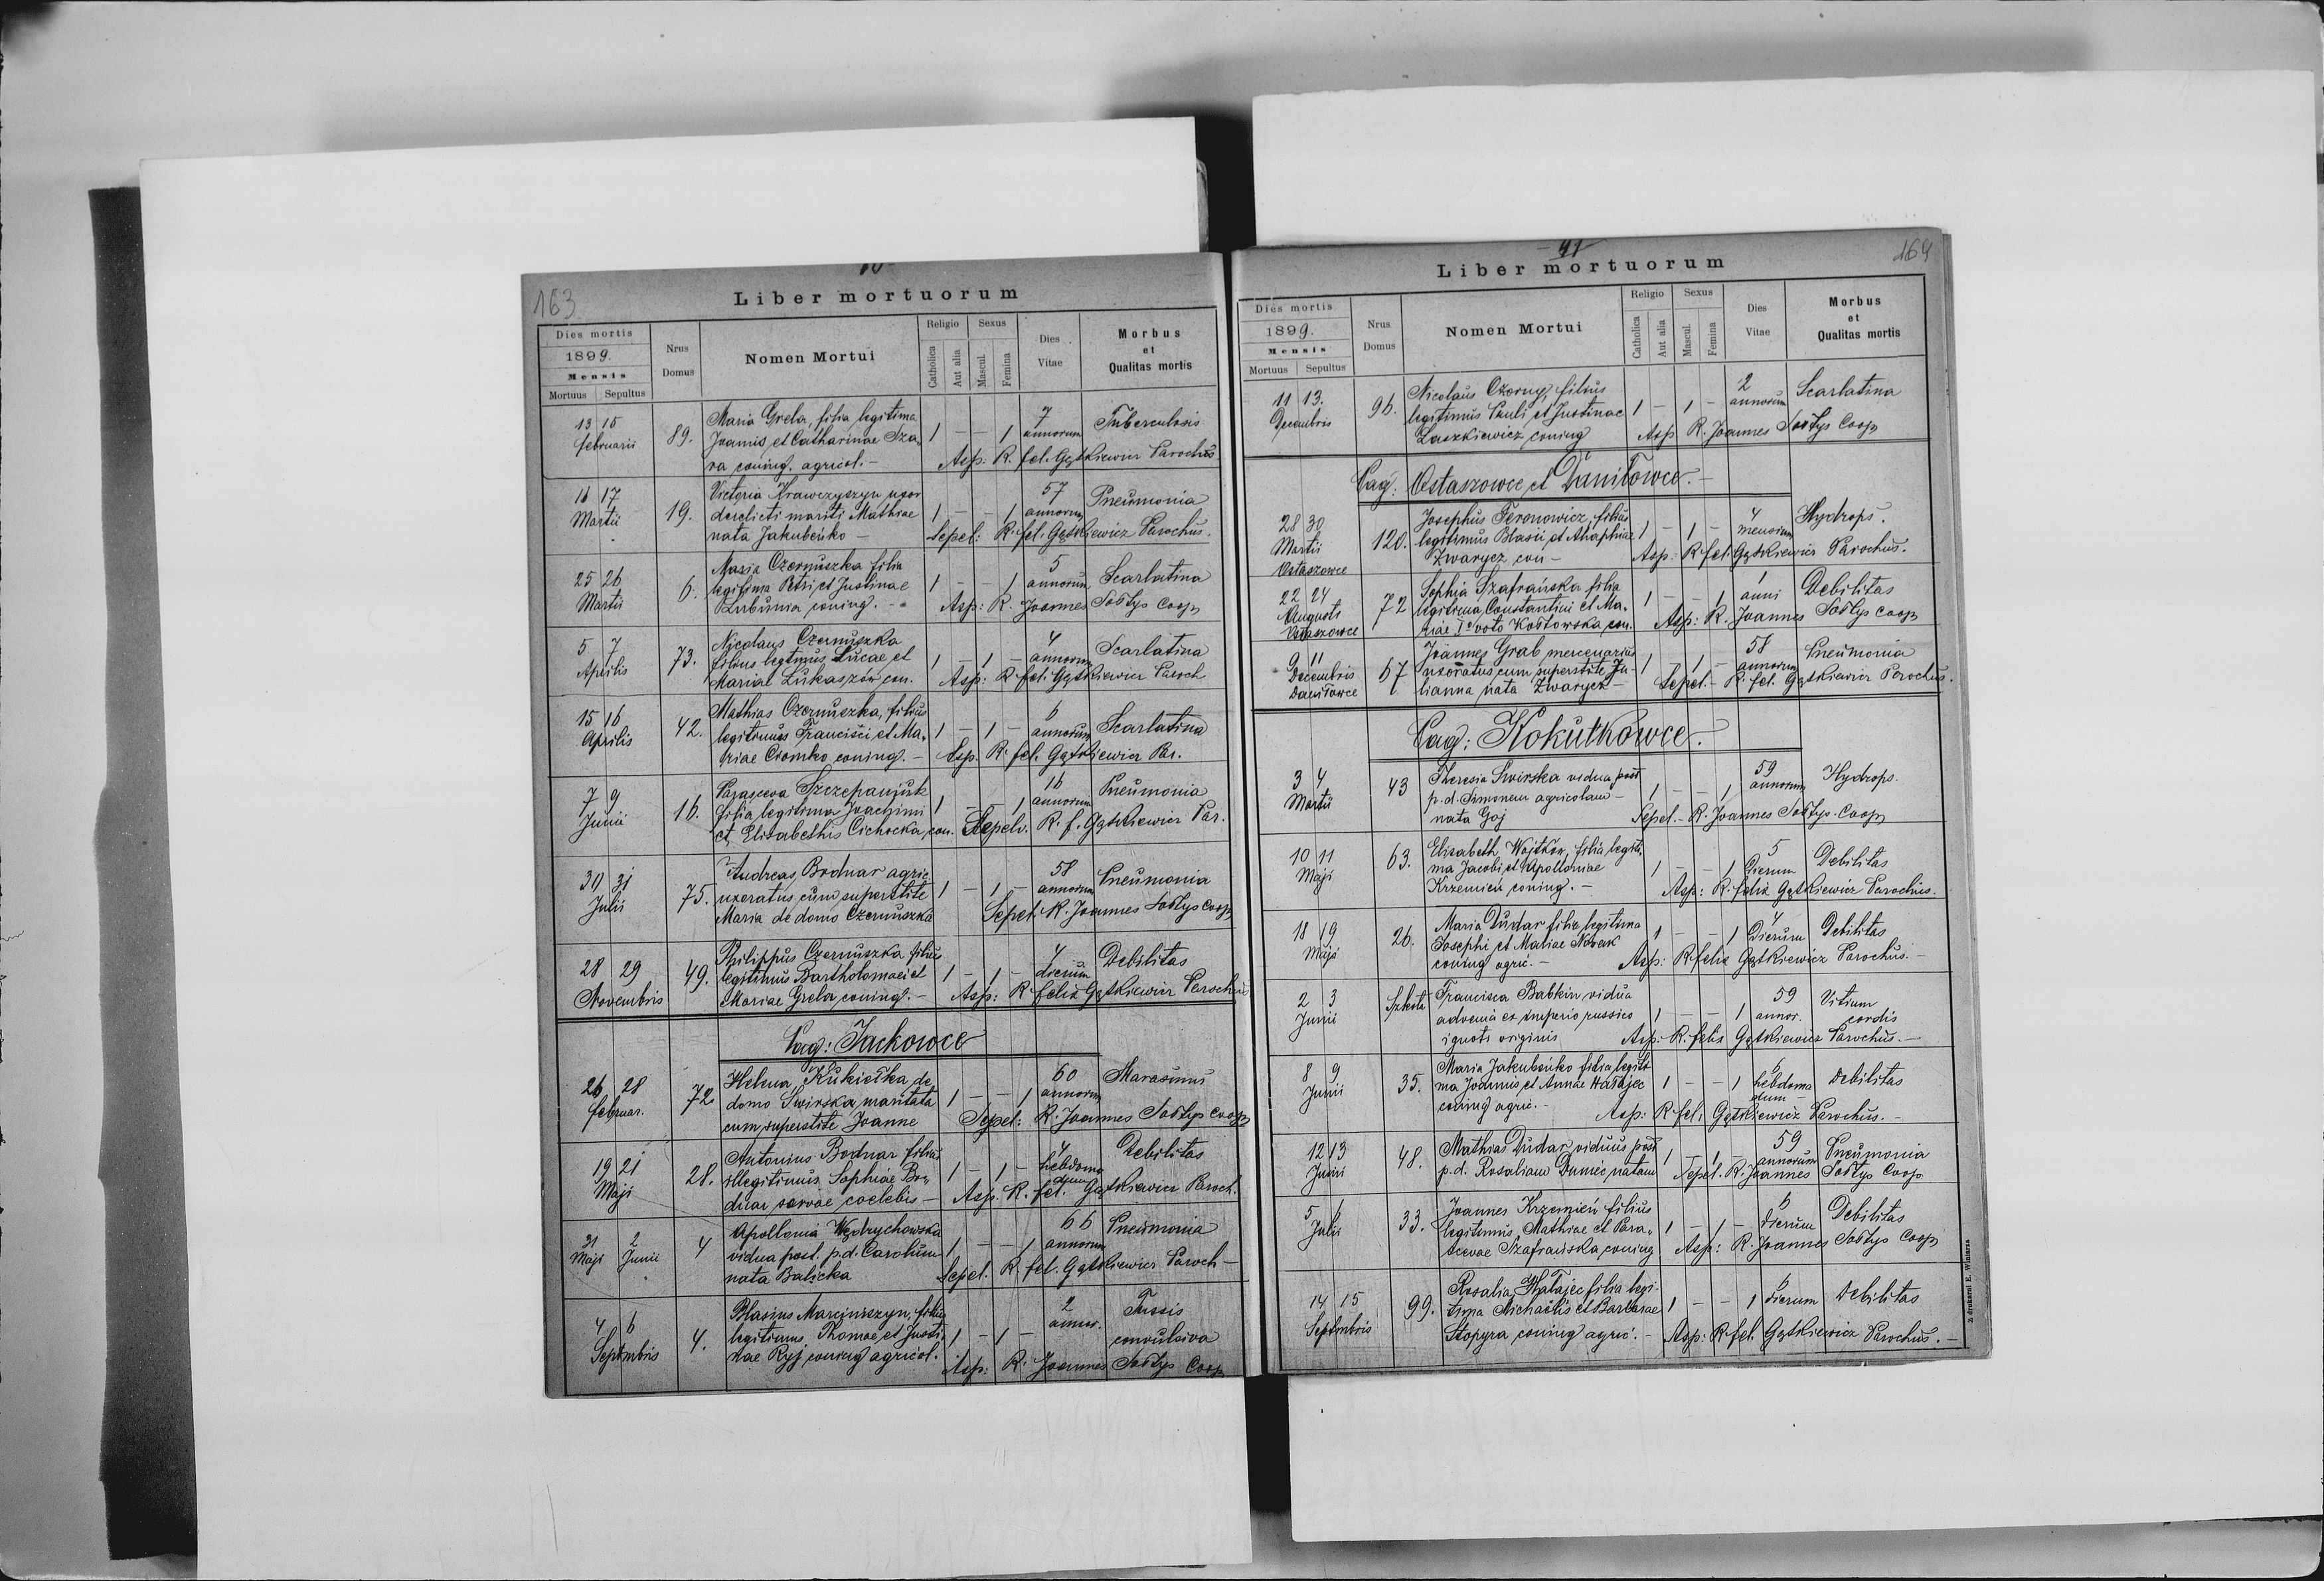 163
Liber mortuorum
Dies mortis
1899.
Mensis
Mortuus Sepultus
Nrus Domus
Nomen Mortui
Religio
Catholica Aut alia
Sexus
Mascul. Femina
Dies Vitae
Morbus et Qualitas mortis
13 15 Februarii 89. Maria Grela, filia legitima 1 – – 1 7 annorum Tuberculosis
Joannis et Catharinae
coniug. agricol. – Asp: R. fel. Gątkiewicz Parochus.
16 17 Martii 19. Victoria Krawczyszyn uxor 1 – – 1 57 annorum Pneumonia
derelicti mariti Mathiae
nata Jakubeńko – Sepel: R. fel. Gątkiewicz Parochus.
25 26 Martii 6. Maria Czernuszka filia 1 – – 1 5 annorum Scarlatina
legitima Petri et Justinae
coniug. – Asp: R. Joannes Sołtys Coop
5 7 Aprilis 73. Nicolaus Czernuszka 1 – 1 – 4 annorum Scarlatina
filius legtmus Lucae et
Mariae Łukaszów con. Asp: R. fel. Gątkiewicz Paroch
15 16 Aprilis 42. Mathias Czernuszka, filius 1 – 1 – 6 annorum Scarlatina
legitimus Francisci et Ma-
riae Ciomko coniug. – Asp. R. fel. Gątkiewicz Par.
7 9 Junii 16. Parasceva Szczepanjuk 1 – – 1 16 annorum Pneumonia
filia legitima Joachimi
et Elisabethis Cichocka, con. Sepelv. R. f. Gątkiewicz Par.
30 31 Julii 75. Andreas Bodnar agric. 1 – 1 – 58 annorum Pneumonia
uxoratus, cum superstite
Maria de domo Czernuszka Sepel: R. Joannes Sołtys Coop
28 29 Novembris 49. Philippus Czernuszka filius 1 – 1 – 4 dierum Debilitas
legitimus Bartholomaei et
Mariae Grela, coniug. – Asp: R. felix Gątkiewicz Parochus
Pag: Jackowce
26 28 Februar. 72 Helena Kukiełka de 1 – – 1 60 annorum Marasmus
domo Swirska maritata
cum superstite Joanne Sepel: R. Joannes Sołtys Coop
19 21 Maji 28. Antonius Bodnar filius 1 – 1 – 4 hebdoma dum Debilitas
illegitimus Sophiae Bo-
dnar servae coelebis – Asp. R. fel. Gątkiewicz Paroch.
31 Maji 2 Junii 4 Apollonia Wędrychowska 1 – – 1 66 annorum Pneumonia
vidua post. p.d. Carolum
nata Balicka Sepel. R. fel. Gątkiewicz Paroch –
4 6 Septmbris 4. Blasius Marciniszyn, filius 1 – 1 – 2 annor. Tussis convulsiva
legitimus Thomae et Justi-
nae Ryj coniug agricol. Asp: R. Joannes Sołtys Coop
– 41 –
164
Liber mortuorum
Dies mortis
1899.
Mensis
Mortuus Sepultus
Nrus Domus
Nomen Mortui
Religio
Catholica Aut alia
Sexus
Mascul. Femina
Dies Vitae
Morbus et Qualitas mortis
11 13. Decembris 96. Nicolaus Czorny, filius 1 – 1 – 2 annorum Scarlatina
legitimus Pauli et Justinae
Laszkiewicz coniug Asp. R. Joannes Sołtys Coop
Pag: Ostaszowce et Daniłowce. –
28 30 Martii Ostaszowce 120. Josephus Feronowicz, filius 1 – 1 – 4 mensium Hydrops.
legitimus Blasii et Ahaphiae
Zwarycz con – Asp: R. fel. Gątkiewicz Parochus.
22 24 Augusti Ostaszowce 72 Sophia Szafrańska filia 1 – – 1 1 anni Debilitas
legitima Constantini et Ma-
riae I voto Kostowska con. Asp: R. Joannes Sołtys Coop
9 11 Decembris Daniłowce 67 Joannes Grab mercenarius 1 1 – 58 annorum Pneumonia
uxoratus, cum superstite Ju-
lianna nata Zwarycz – Sepel. – R. fel. Gątkiewicz Parochus.
Pag: Kokutkowce.
3 4 Martii 43 Theresia Swirska vidua post 1 – – 1 59 annorum Hydrops.
p.d. Simonem agricolam –
nata Goj Sepel. – R. Joannes Sołtys. Coop
10 11 Maji 63. Elisabeth Wojtków, filia legiti- 1 – 1 5 Dierum Debilitas
ma Jacobi et Apolloniae
Krzemień coniug. – Asp: R. felix Gątkiewicz Parochus.
18 19 Maji 26. Maria Dudar filia legitima 1 – – 1 4 Dierum Debilitas
Josephi et Mariae Nowak
coniug agric. – Asp: R. felix Gątkiewicz Parochus. –
2 3 Junii Szkoła Francisca Babkin vidua 1 – – 1 59 annor. Vitium cordis
advena ex imperio russico
ignoti originis Asp: R. felix Gątkiewicz Parochus. –
8 9 Junii 35. Maria Jakubeńko filia legiti 1 – – 1 6 hebdoma dum Debilitas
ma Joannis et Annae Hałajec
coniug agric. – Asp: R. fel. Gątkiewicz Parochus. –
12 13 Junii 48. Mathias Dudar, viduus post 1 – 1 – 59 annorum Pneumonia
p.d. Rosaliam Dumec natam Sepel. R. Joannes Sołtys Coop
5 6 Julii 33. Joannes Krzemień filius 1 – 1 – 6 Dierum Debilitas
legitimus Mathiae et Para-
scevae Szafrańska, coniug Asp: R. Joannes Sołtys Coop
14 15 Septmbris 99. Rosalia Hałajec filia legi- 1 – – 1 6 dierum Debilitas
tima Michaelis et Barbarae
Stopyra coniug agric. – Asp: R. fel. Gątkiewicz Parochus. –
Z drukarni E. Winiarza